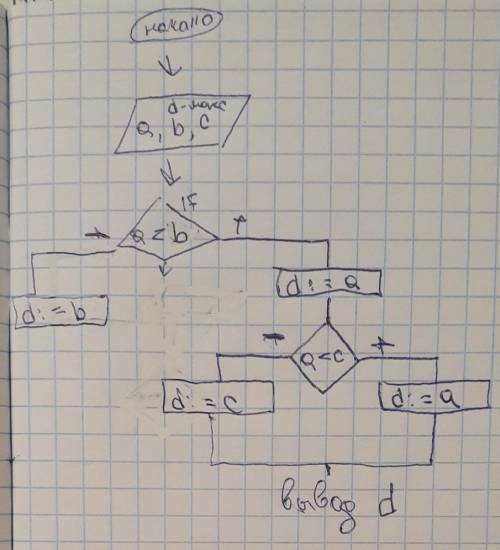 начало
d-макс
a, b, c
IF
a < b
- +
d := a
d := b
- a < c +
d := c d := a
вывод d